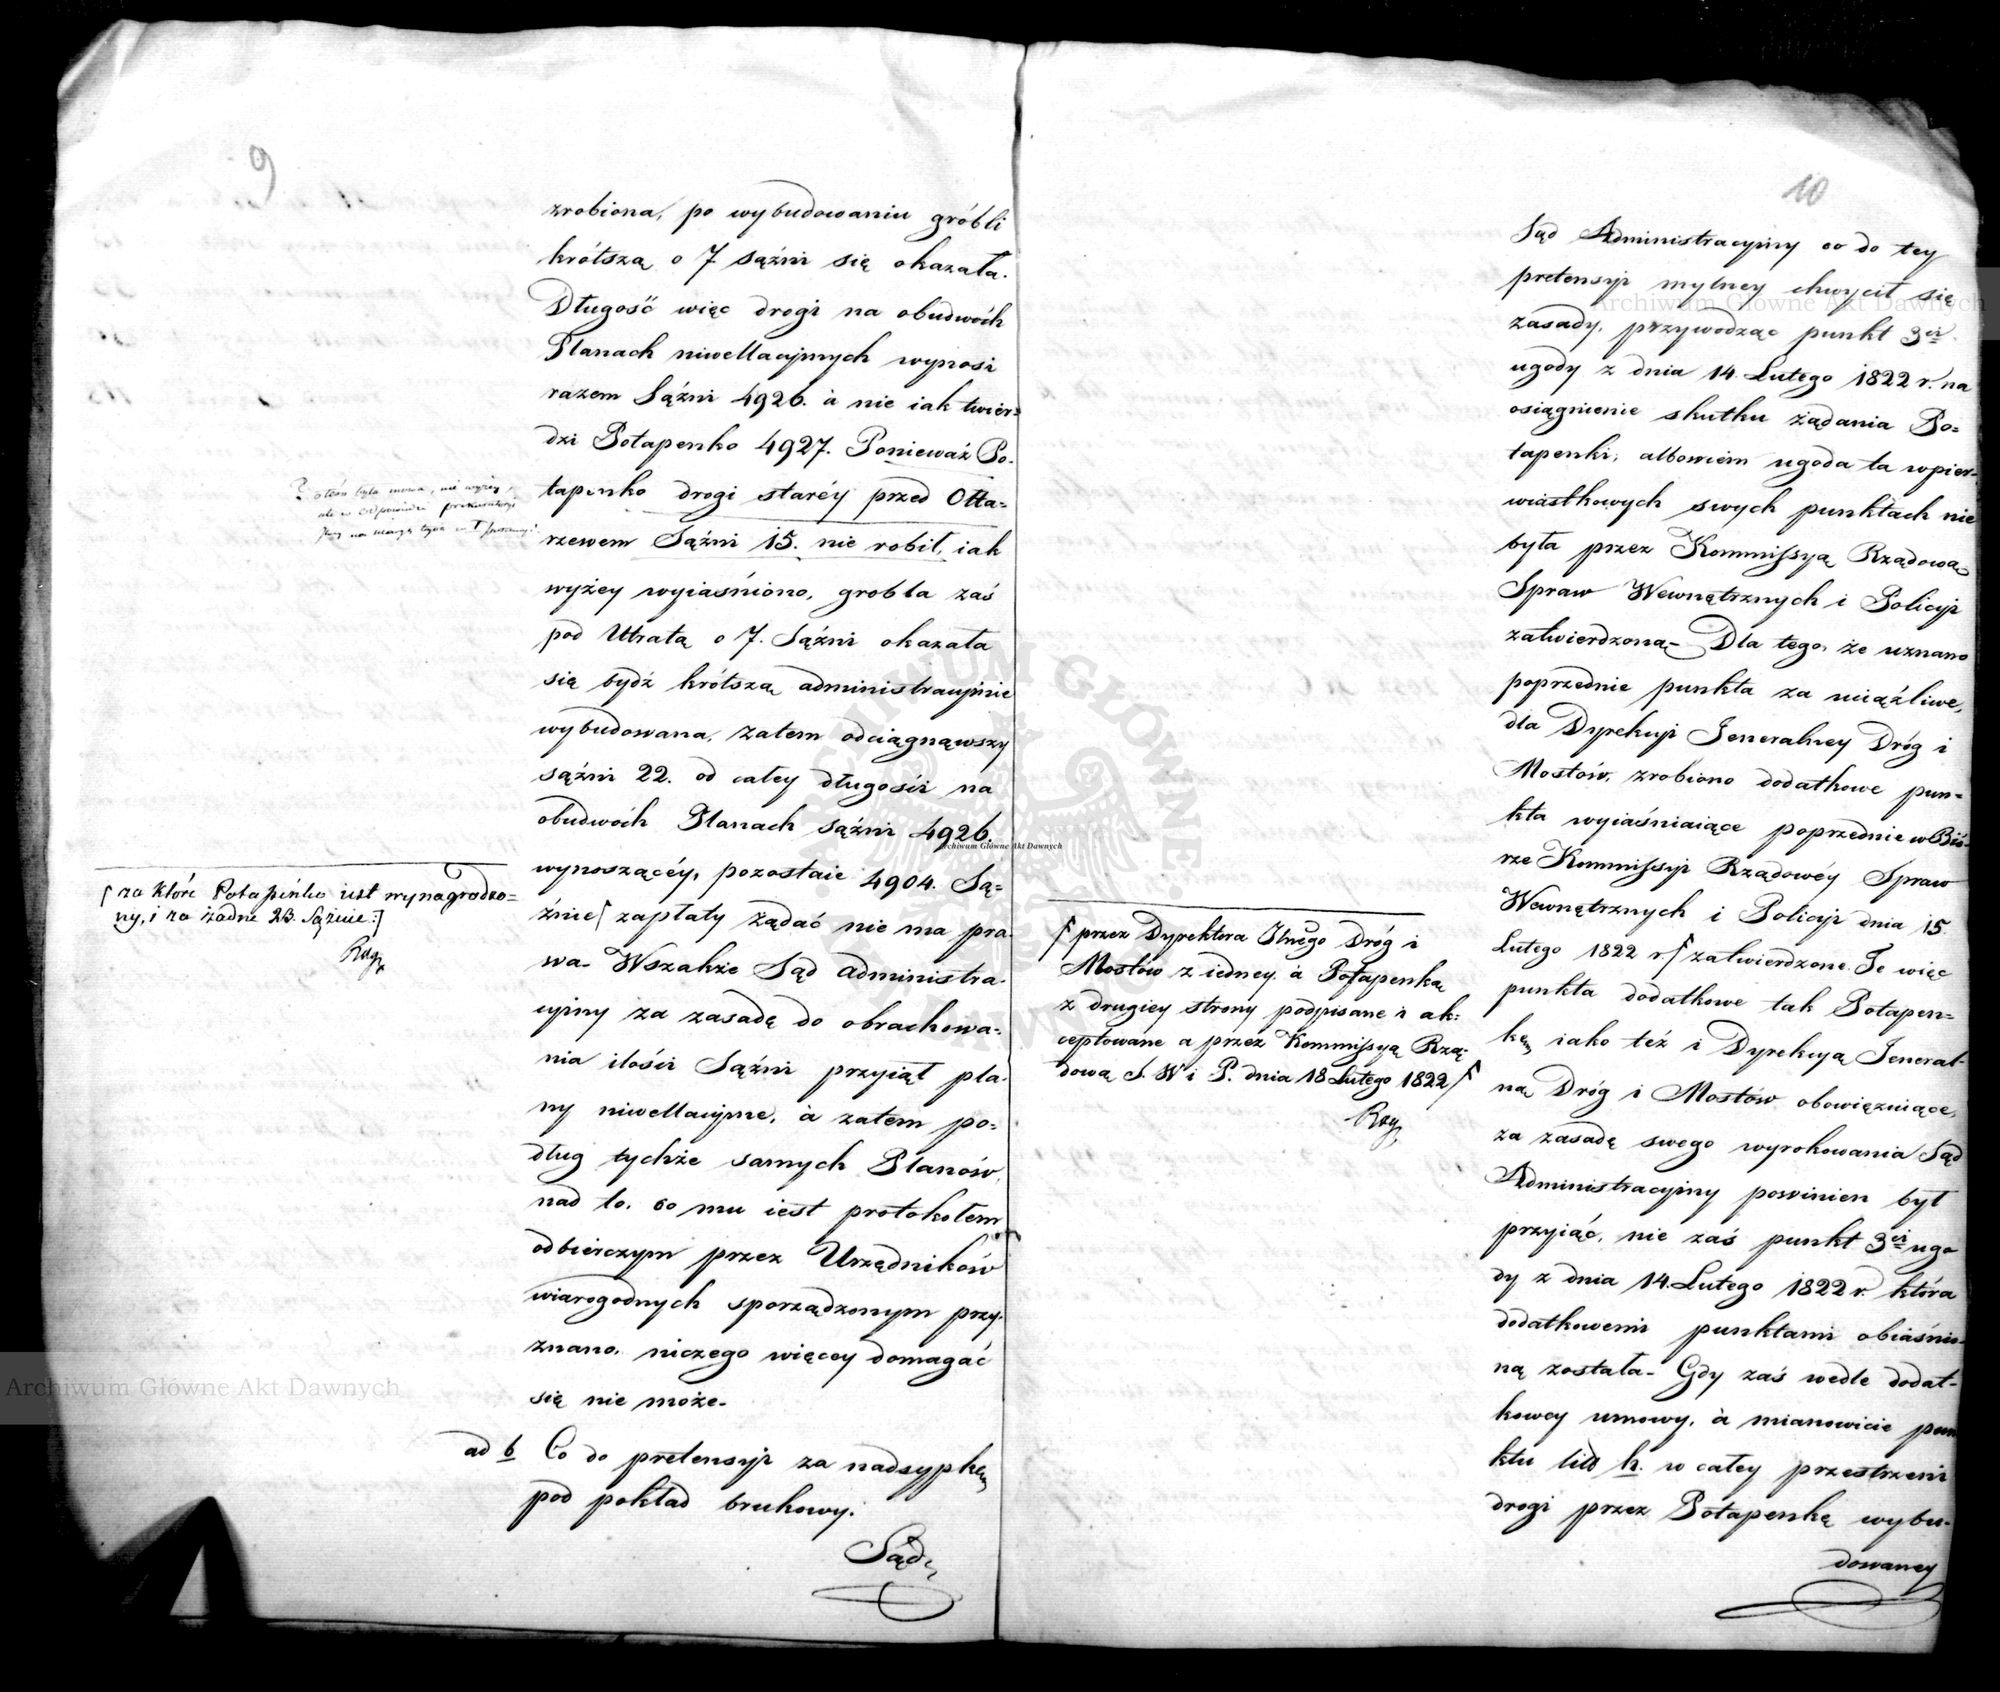 9
zrobiona, po wybudowaniu gróbli
krótszą o 7 sążni się okazała.
Długość więc drogi na obudwóch
Planach niwellacyjnych wynosi
razem Sążni 4926. à nie iak twier=
dzi Potapenko 4927. Ponieważ Po-
tapenko drogi staréy przed Ołta=
rzewem Sążni 15. nie robił, iak
wyżey wyiaśniono, grobla zaś
pod Utratą o 7. Sążni okazała
się bydź krótszą administracyjnie
wybudowana, zatem odciągnąwszy
sążni 22. od całey długości na
obudwóch Planach sążni 4926.
wynoszącéy, pozostaie 4904. Są=
żnie zapłaty żądać nie ma pra-
wa- Wszakże Sąd administra-
cyiny za zasadę do obrachowa=
nia ilości Sążni przyiął pla-
ny niwellacyjne, à zatem po=
dług tychże samych Planów,
nad to, co mu iest protokołem
odbiorczym przez Urzędników
wiarogodnych sporządzonym przy-
znano, niczego więcey domagać
się nie może-
ad b Co do pretensyi za nadsypkę
pod pokład brukowy.
Sąd
? o tém była mowa, nie wyżey,
ale w odpowiedzi
za które Potapińko iest wynagrodzo=
ny, i za żadne 23. Sążnie:]
10
Sąd Administracyjny co do tey
pretensyi mylney chwycił się
zasady, przywodząc punkt 3ci
ugody z dnia 14. Lutego 1822 r. na
osiągnienie skutku żądania Po=
tapenki, albowiem ugoda ta w pier-
wiastkowych swych punktach nie
była przez Kommissyą Rządową
Spraw Wewnętrznych i Policyi
zatwierdzoną- Dla tego, że uznano
poprzednie punkta za uciążliwe,
dla Dyrekcyi Jeneralney Dróg i
Mostów, zrobiono dodatkowe pun=
kta wyiaśniaiące poprzednie w Biu-
rze Kommissyi Rządowéy Spraw
Wewnętrznych i Policyi dnia 15
Lutego 1822 r. zatwierdzone. Te więc
punkta dodatkowe tak Potapen=
kę iako też i Dyrekcyą Jeneral-
ną Dróg i Mostów obowięzuiące,
za zasadę swego wyrokowania Sąd
Administracyjny powinien był
przyiąć, nie zaś punkt 3ci ugo
dy z dnia 14. Lutego 1822 r. która
dodatkowemi punktami obiaśnio-
ną została- Gdy zaś wedle dodat-
kowey umowy, à mianowicie pun
ktu litt h. w całey przestrzeni
drogi przez Potapenkę wybu-
dowaney
przez Dyrektora Jlnego Dróg i
Mostów z iedney à Potapenką
z drugiey strony podpisane i ak=
ceptowane a przez Kommissyą Rzą-
dową S. W i P. dnia 18 Lutego 1822
Archiwum Główne Akt Dawnych
Archiwum Główne Akt Dawnych
Archiwum Główne Akt Dawnych